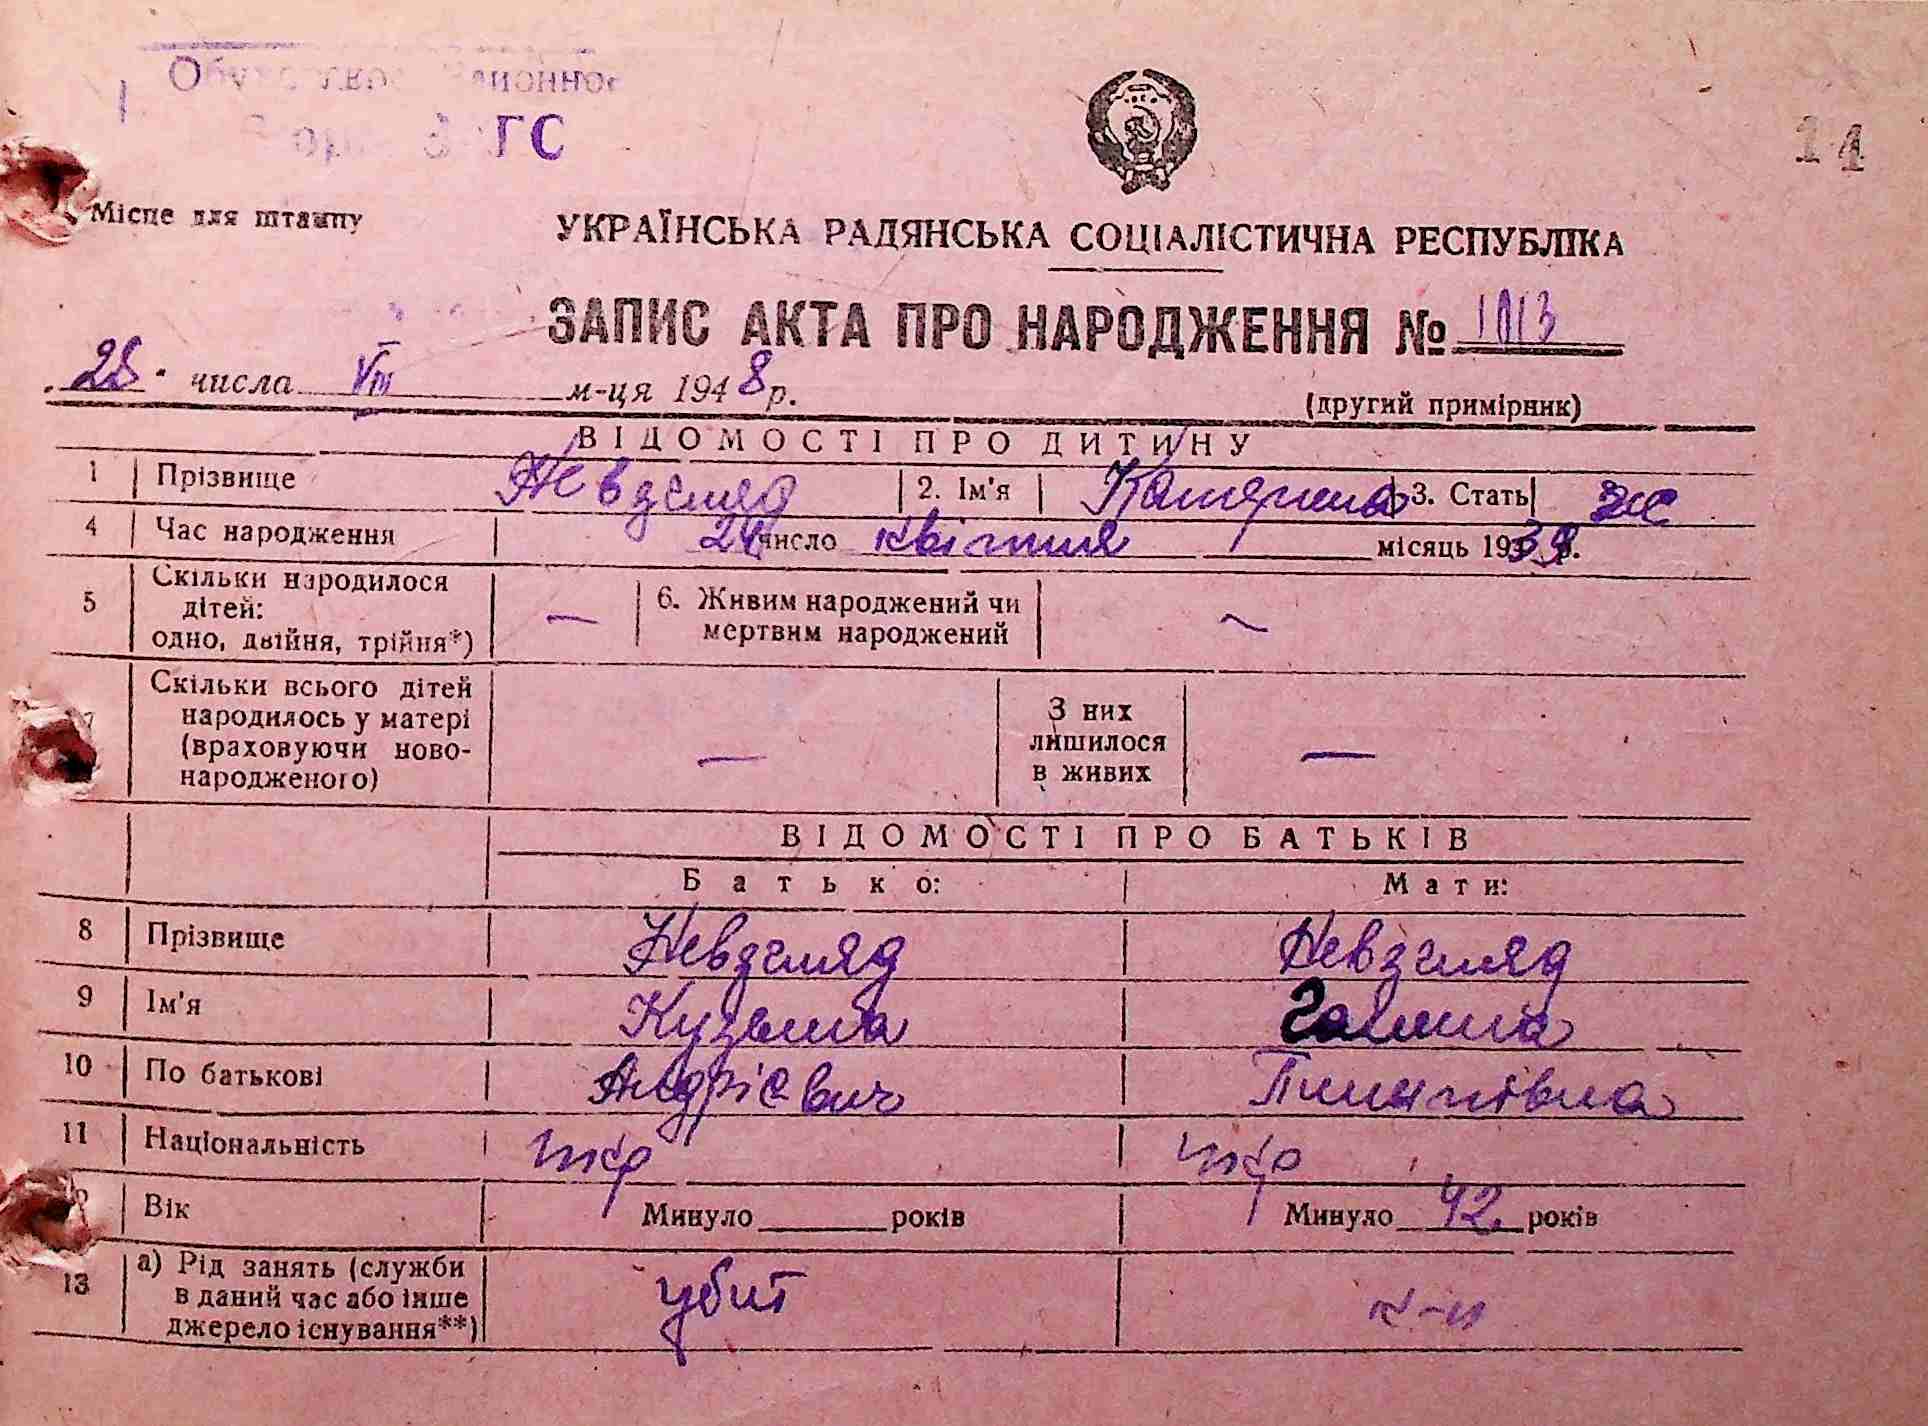 ГС
14
Місце для штампу
УКРАЇНСЬКА РАДЯНСЬКА СОЦІАЛІСТИЧНА РЕСПУБЛІКА
ЗАПИС АКТА ПРО НАРОДЖЕННЯ № 1013
28 числа VIII м-ця 1948 р.
(другий примірник)
ВІДОМОСТІ ПРО ДИТИНУ
1 Прізвище Невдгляд 2. Ім'я Катерина 3. Стать ж
4 Час народження 24 число квітня місяць 1939 р.
5 Скільки народилося дітей: одно, двійня, трійня*) — 6. Живим народжений чи мертвим народжений —
7 Скільки всього дітей народилось у матері (враховуючи новонародженого) — З них лишилося в живих —
ВІДОМОСТІ ПРО БАТЬКІВ
Батько: Мати:
8 Прізвище Невзгляд Невзгляд
9 Ім'я Кузьма Галина
10 По батькові Андрієвич Пилипівна
11 Національність укр укр
12 Вік Минуло років Минуло 42 років
13 а) Рід занять (служби в даний час або інше джерело існування**) убит к-к